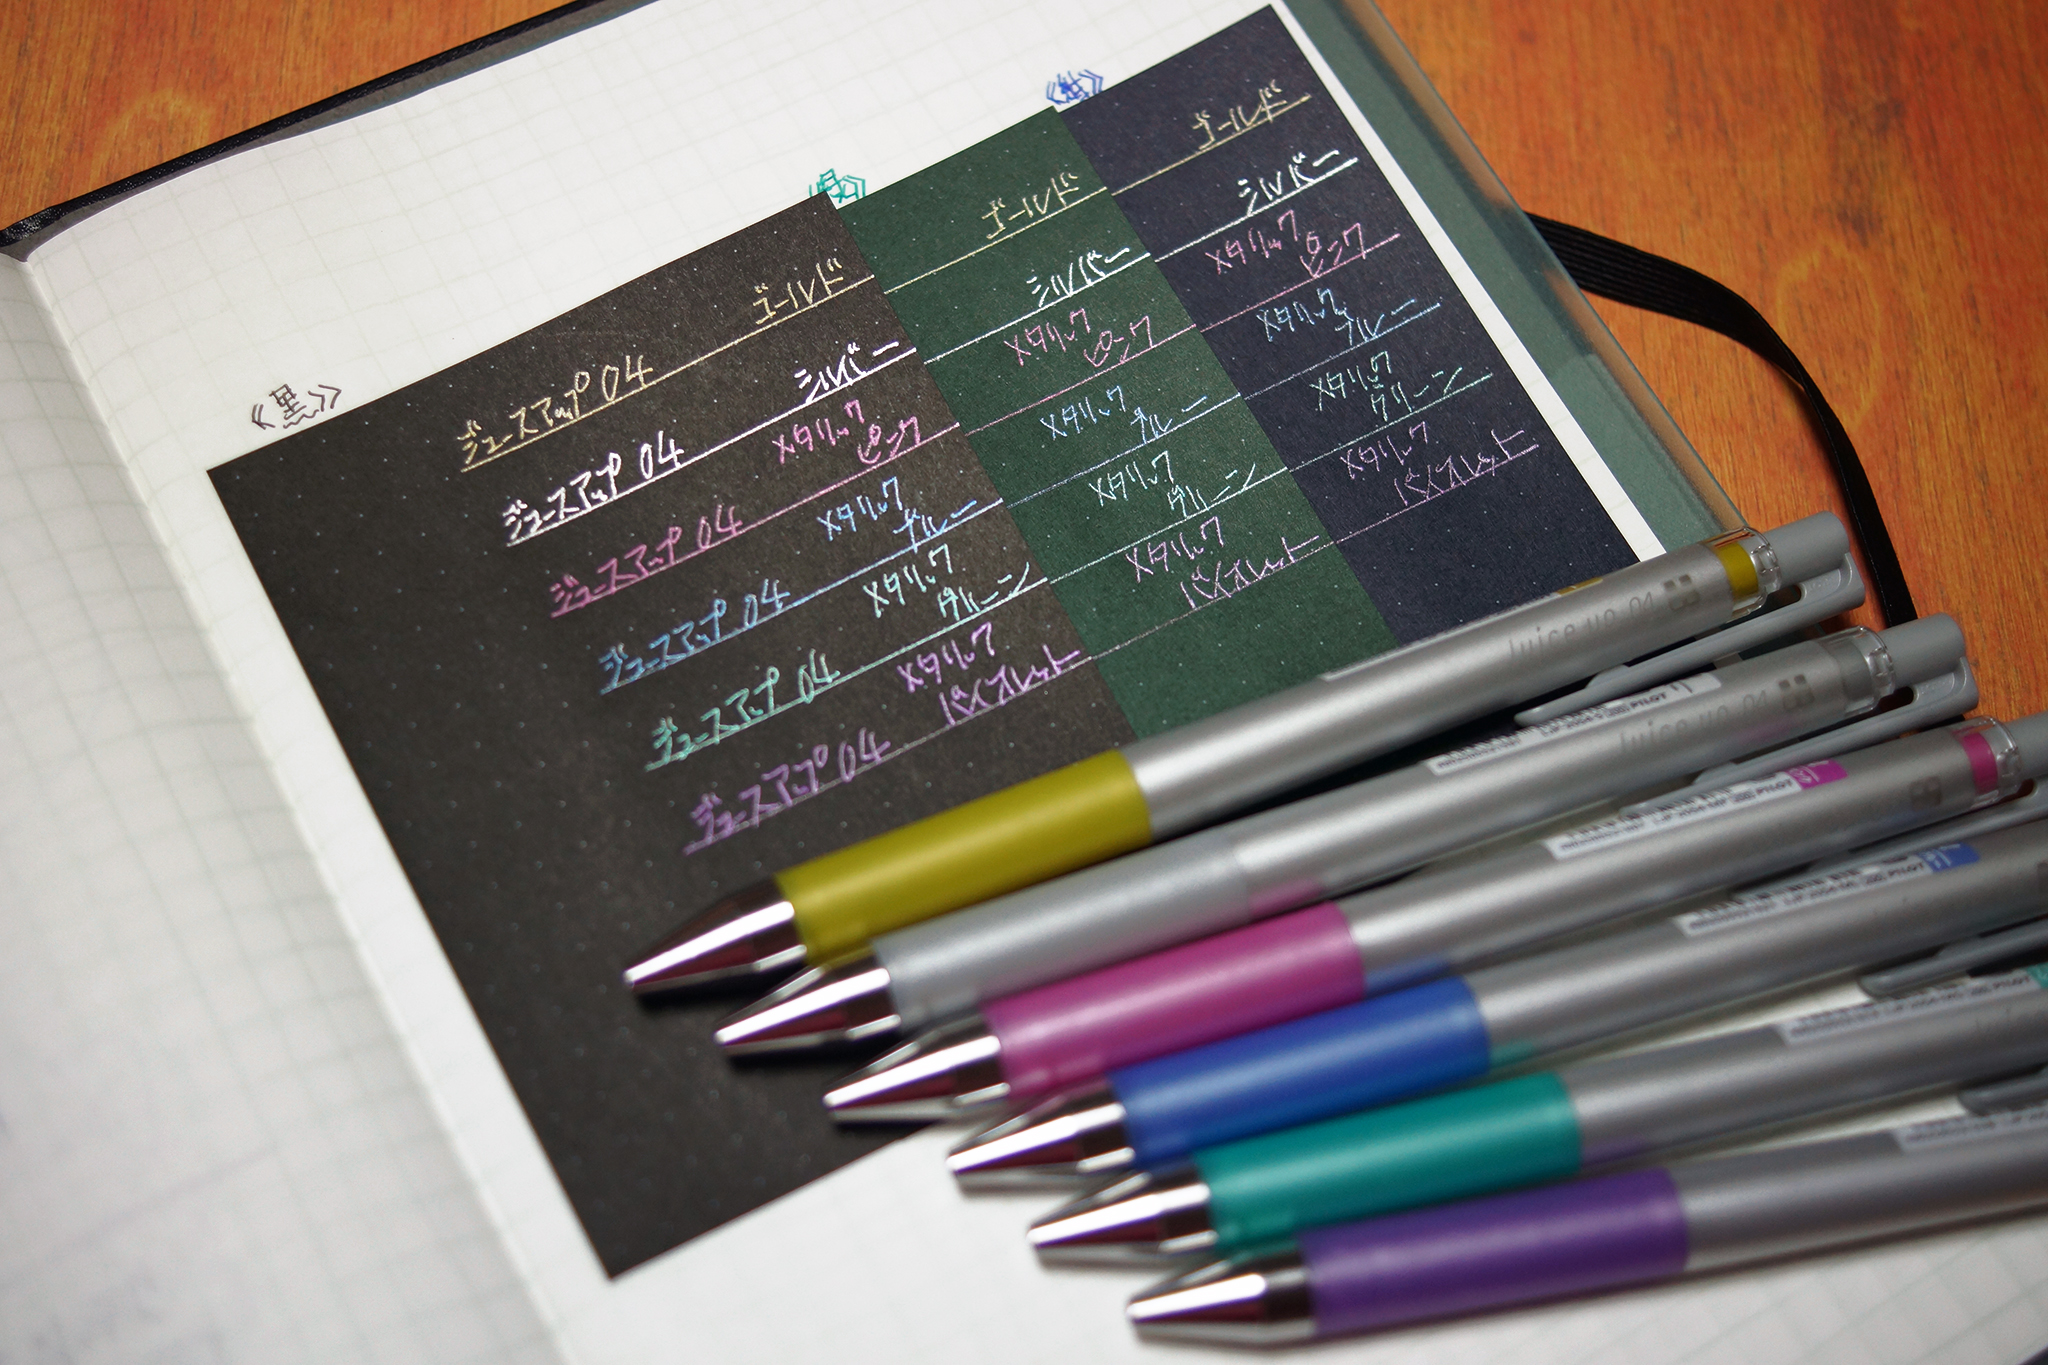 《黒》
《緑》
《紺》
ジュースアップ 04 ゴールド
ジュースアップ 04 シルバー
ジュースアップ 04 メタリック
ピンク
ジュースアップ 04 メタリック
ブルー
ジュースアップ 04 メタリック
グリーン
ジュースアップ 04 メタリック
バイオレット
ゴールド
シルバー
メタリック
ピンク
メタリック
ブルー
メタリック
グリーン
メタリック
バイオレット
ゴールド
シルバー
メタリック
ピンク
メタリック
ブルー
メタリック
グリーン
メタリック
バイオレット
Juice up 04
Juice up 04
PILOT
PILOT
PILOT